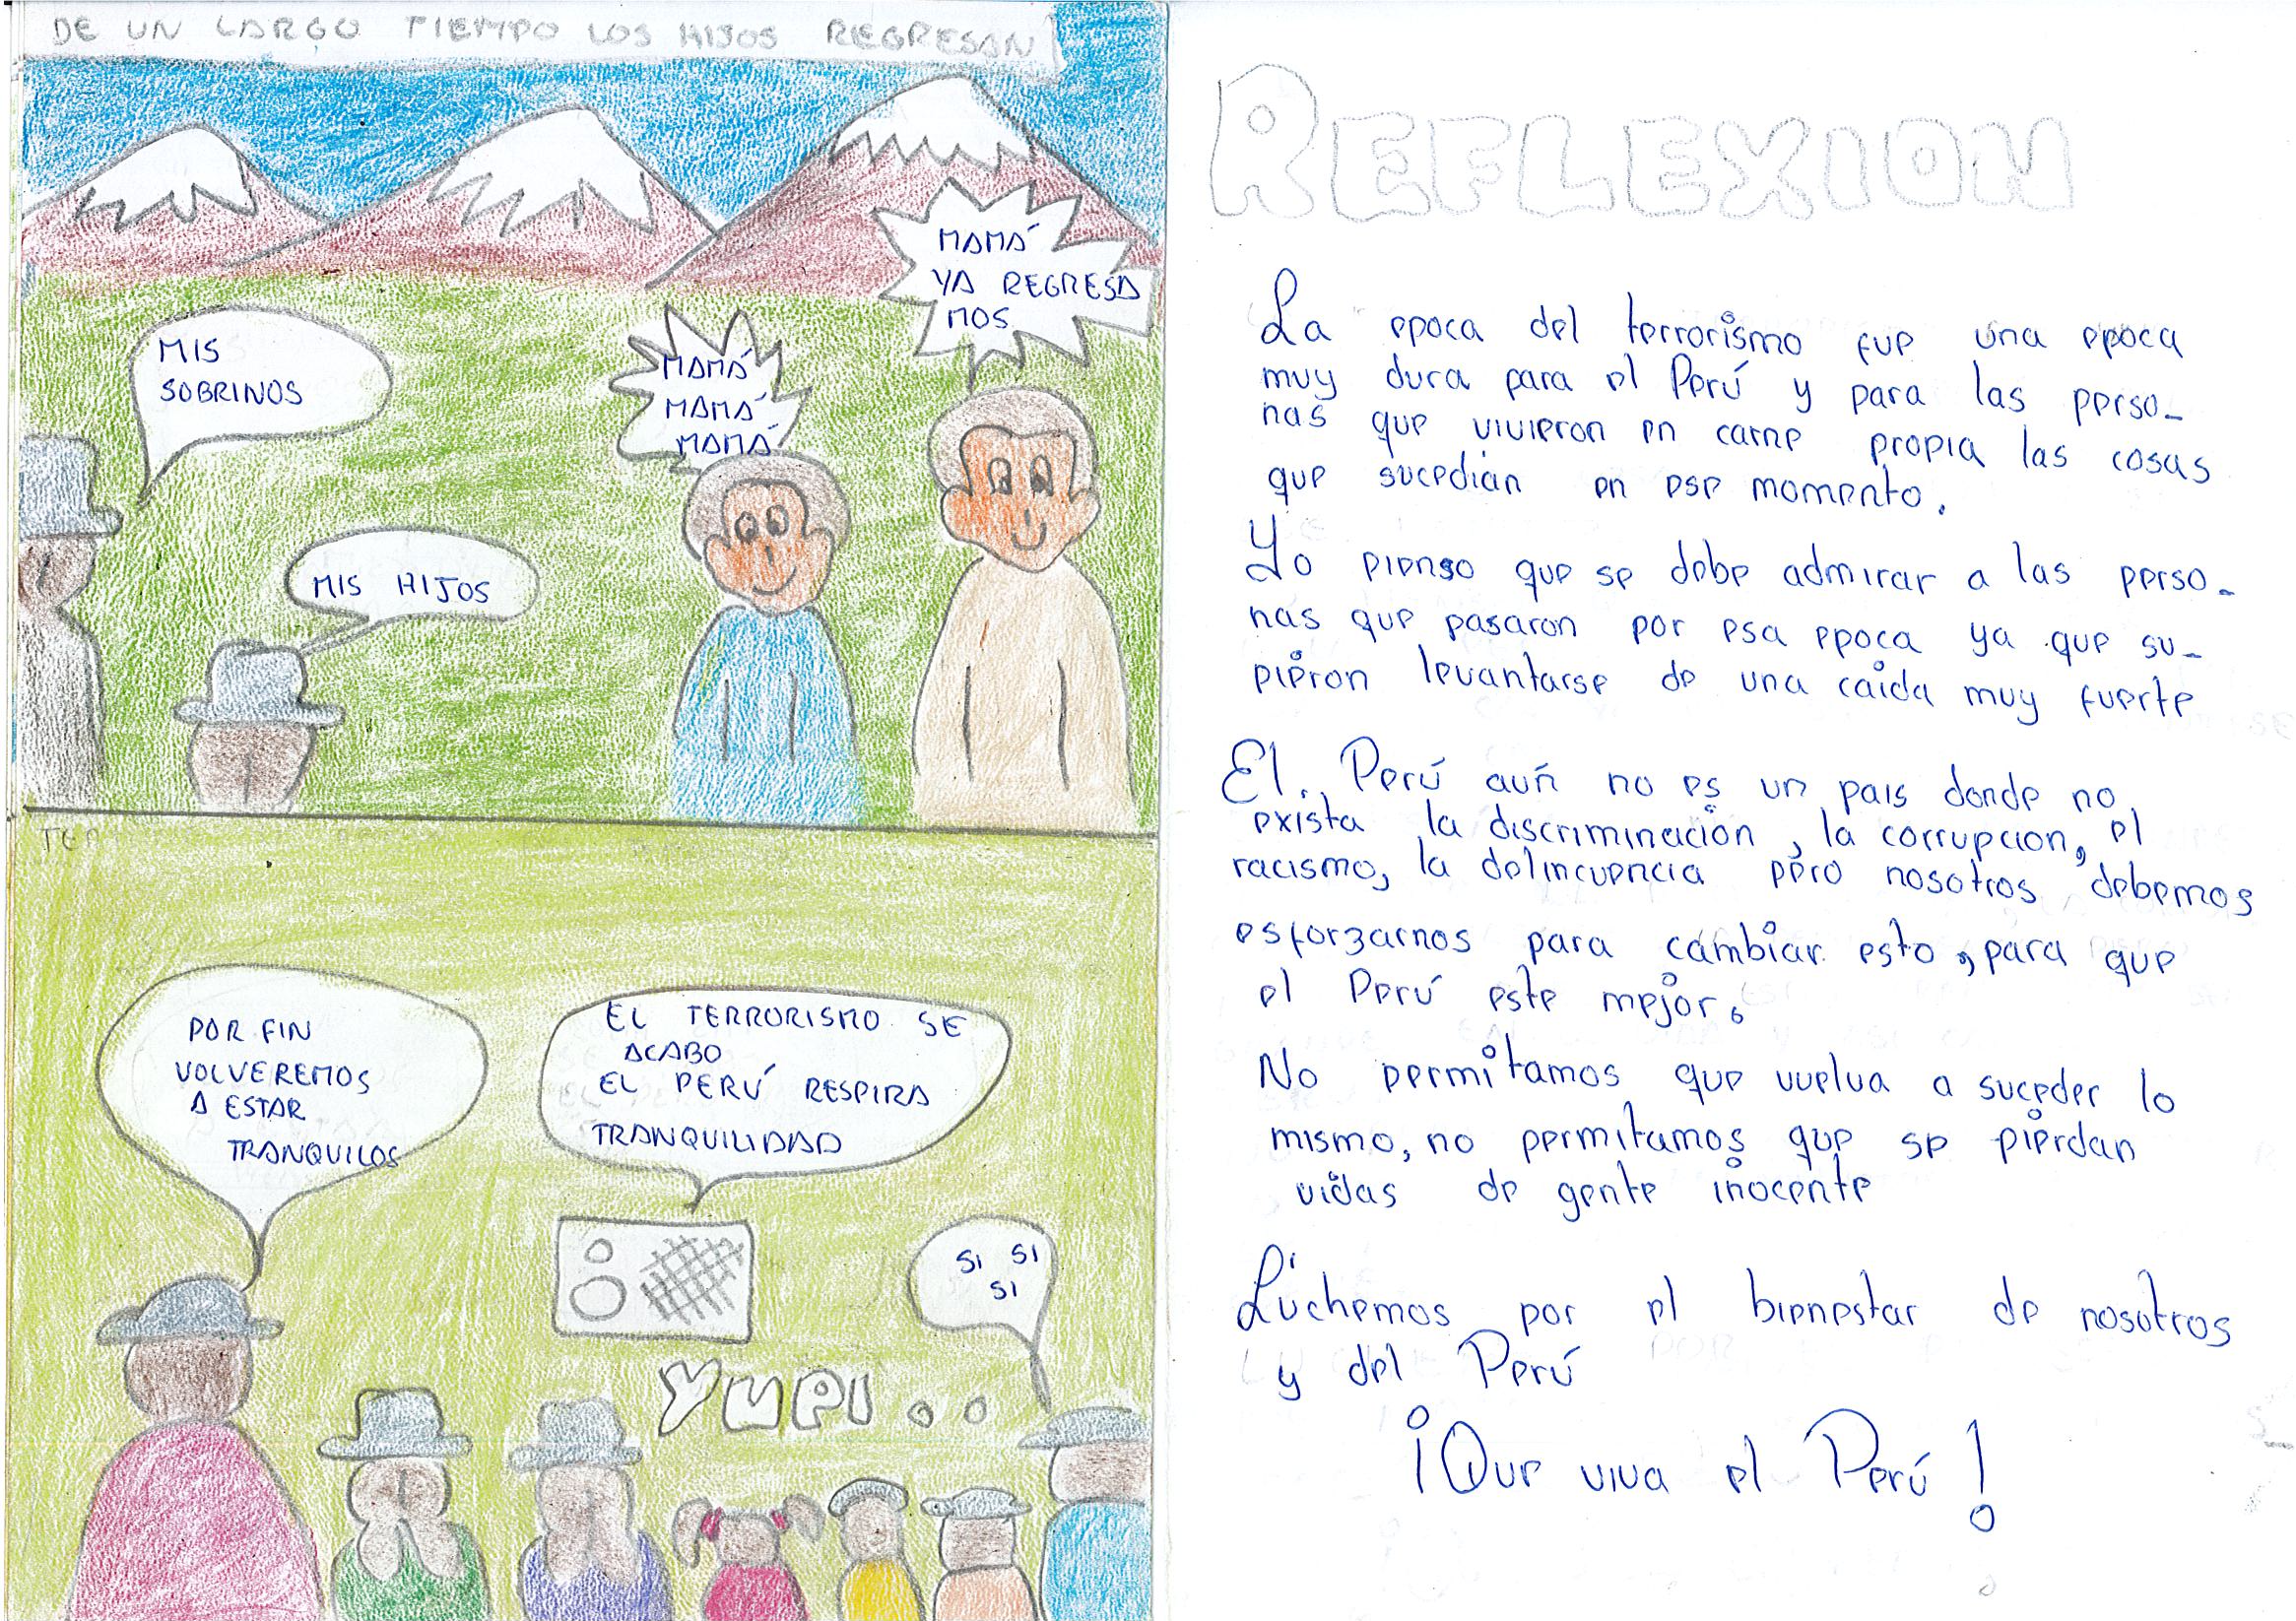 DE UN LARGO TIEMPO LOS HIJOS REGRESAN
MAMÁ
YA REGRESA
MOS
MIS
SOBRINOS
MAMÁ
MAMÁ
MAMÁ
MIS HIJOS
POR FIN
VOLVEREMOS
A ESTAR
TRANQUILOS
EL TERRORISMO SE
ACABO
EL PERÚ RESPIRA
TRANQUILIDAD
SI SI
SI
YUPI..
REFLEXION
La epoca del terrorismo fue una epoca
muy dura para el Perú y para las perso-
nas que vivieron en carne propia las cosas
que sucedian en ese momento.
Yo pienso que se debe admirar a las perso-
nas que pasaron por esa epoca ya que su-
pieron levantarse de una caida muy fuerte
El Perú aún no es un pais donde no
exista la discriminación, la corrupcion, el
racismo, la delincuencia pero nosotros debemos
esforzarnos para cambiar esto, para que
el Perú este mejor.
No permitamos que vuelva a suceder lo
mismo, no permitamos que se pierdan
vidas de gente inocente
Luchemos por el bienestar de nosotros
y del Perú
¡Que viva el Perú!